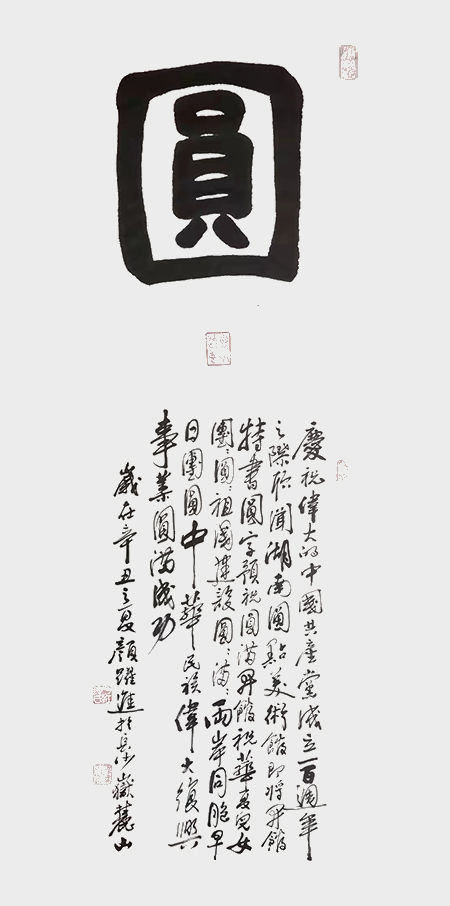 圓
慶祝偉大的中國共產黨成立一百週年
之際欣聞湖南圓點美術館即將開館
特書圓字預祝圓滿開館祝華夏兒女
團團圓圓祖國建設圓圓滿滿兩岸同胞早
日團圓中華民族偉大復興
事業圓滿成功
歲在辛丑之夏顏躍進於長沙嶽麓山